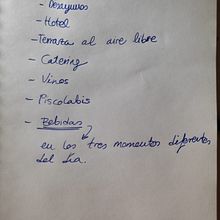 - Desayunos
- Hotel
- Terraza al aire libre
- Catering
- Vinos
- Piscolabis
- Bebidas
en los tres momentos diferentes
del día.